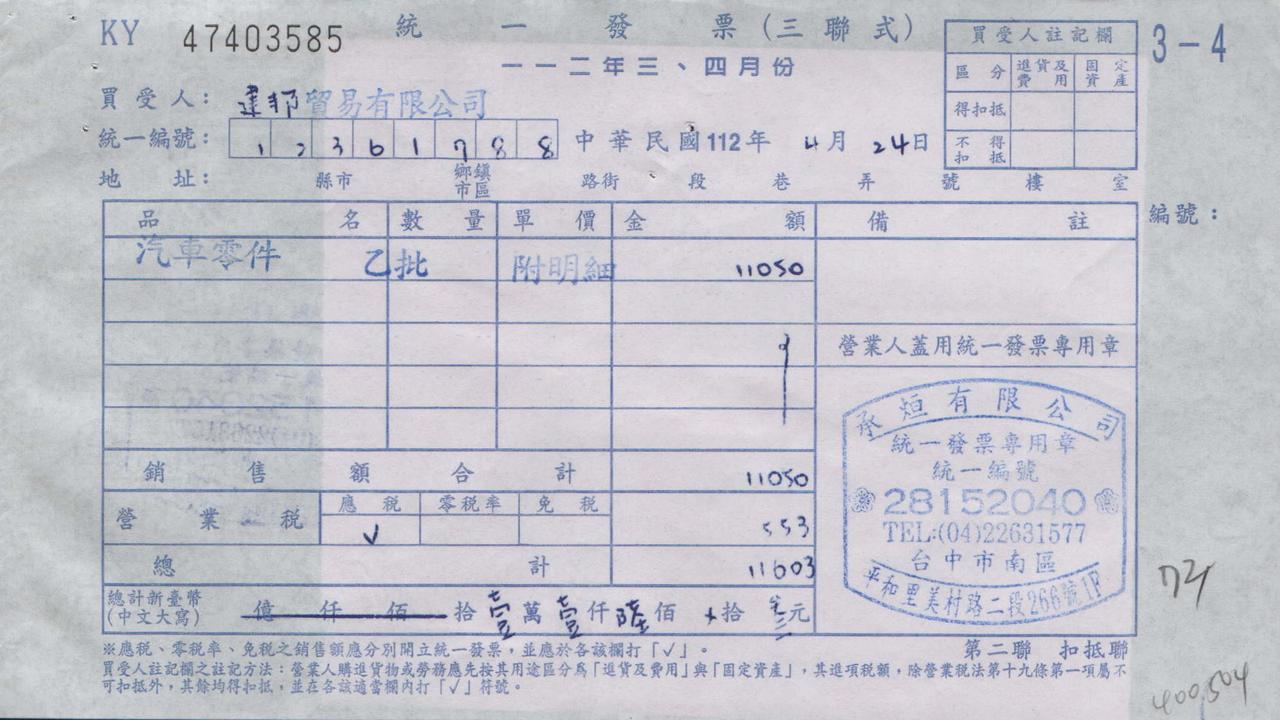 KY 47403585 統一發票(三聯式)
一一二年三、四月份
3-4
買受人註記欄
區分 進貨及費用 固定資產
得扣抵
不得扣抵
買受人: 建邦貿易有限公司
統一編號: 12361788 中華民國112年 4月 24日
地址: 縣市 鄉鎮市區 路街 段 巷 弄 號 樓 室
品名 數量 單價 金額 備註 編號:
汽車零件 乙批 附明細 11050
營業人蓋用統一發票專用章
銷售額合計 11050
營業稅 應稅 零稅率 免稅
√ 553
總計 11603
總計新臺幣(中文大寫) 億 仟 佰 拾 壹萬 壹仟 陸佰 拾 叁元
承烜有限公司
統一發票專用章
統一編號
28152040
TEL:(04)22631577
台中市南區
平和里美村路二段266號1F
※應稅、零稅率、免稅之銷售額應分別開立統一發票,並應於各該欄打「√」。
第二聯 扣抵聯
買受人註記欄之註記方法:營業人購進貨物或勞務應先按其用途區分為「進貨及費用」與「固定資產」,其進項稅額,除營業稅法第十九條第一項屬不
可扣抵外,其餘均得扣抵,並在各該適當欄內打「√」符號。
400,504